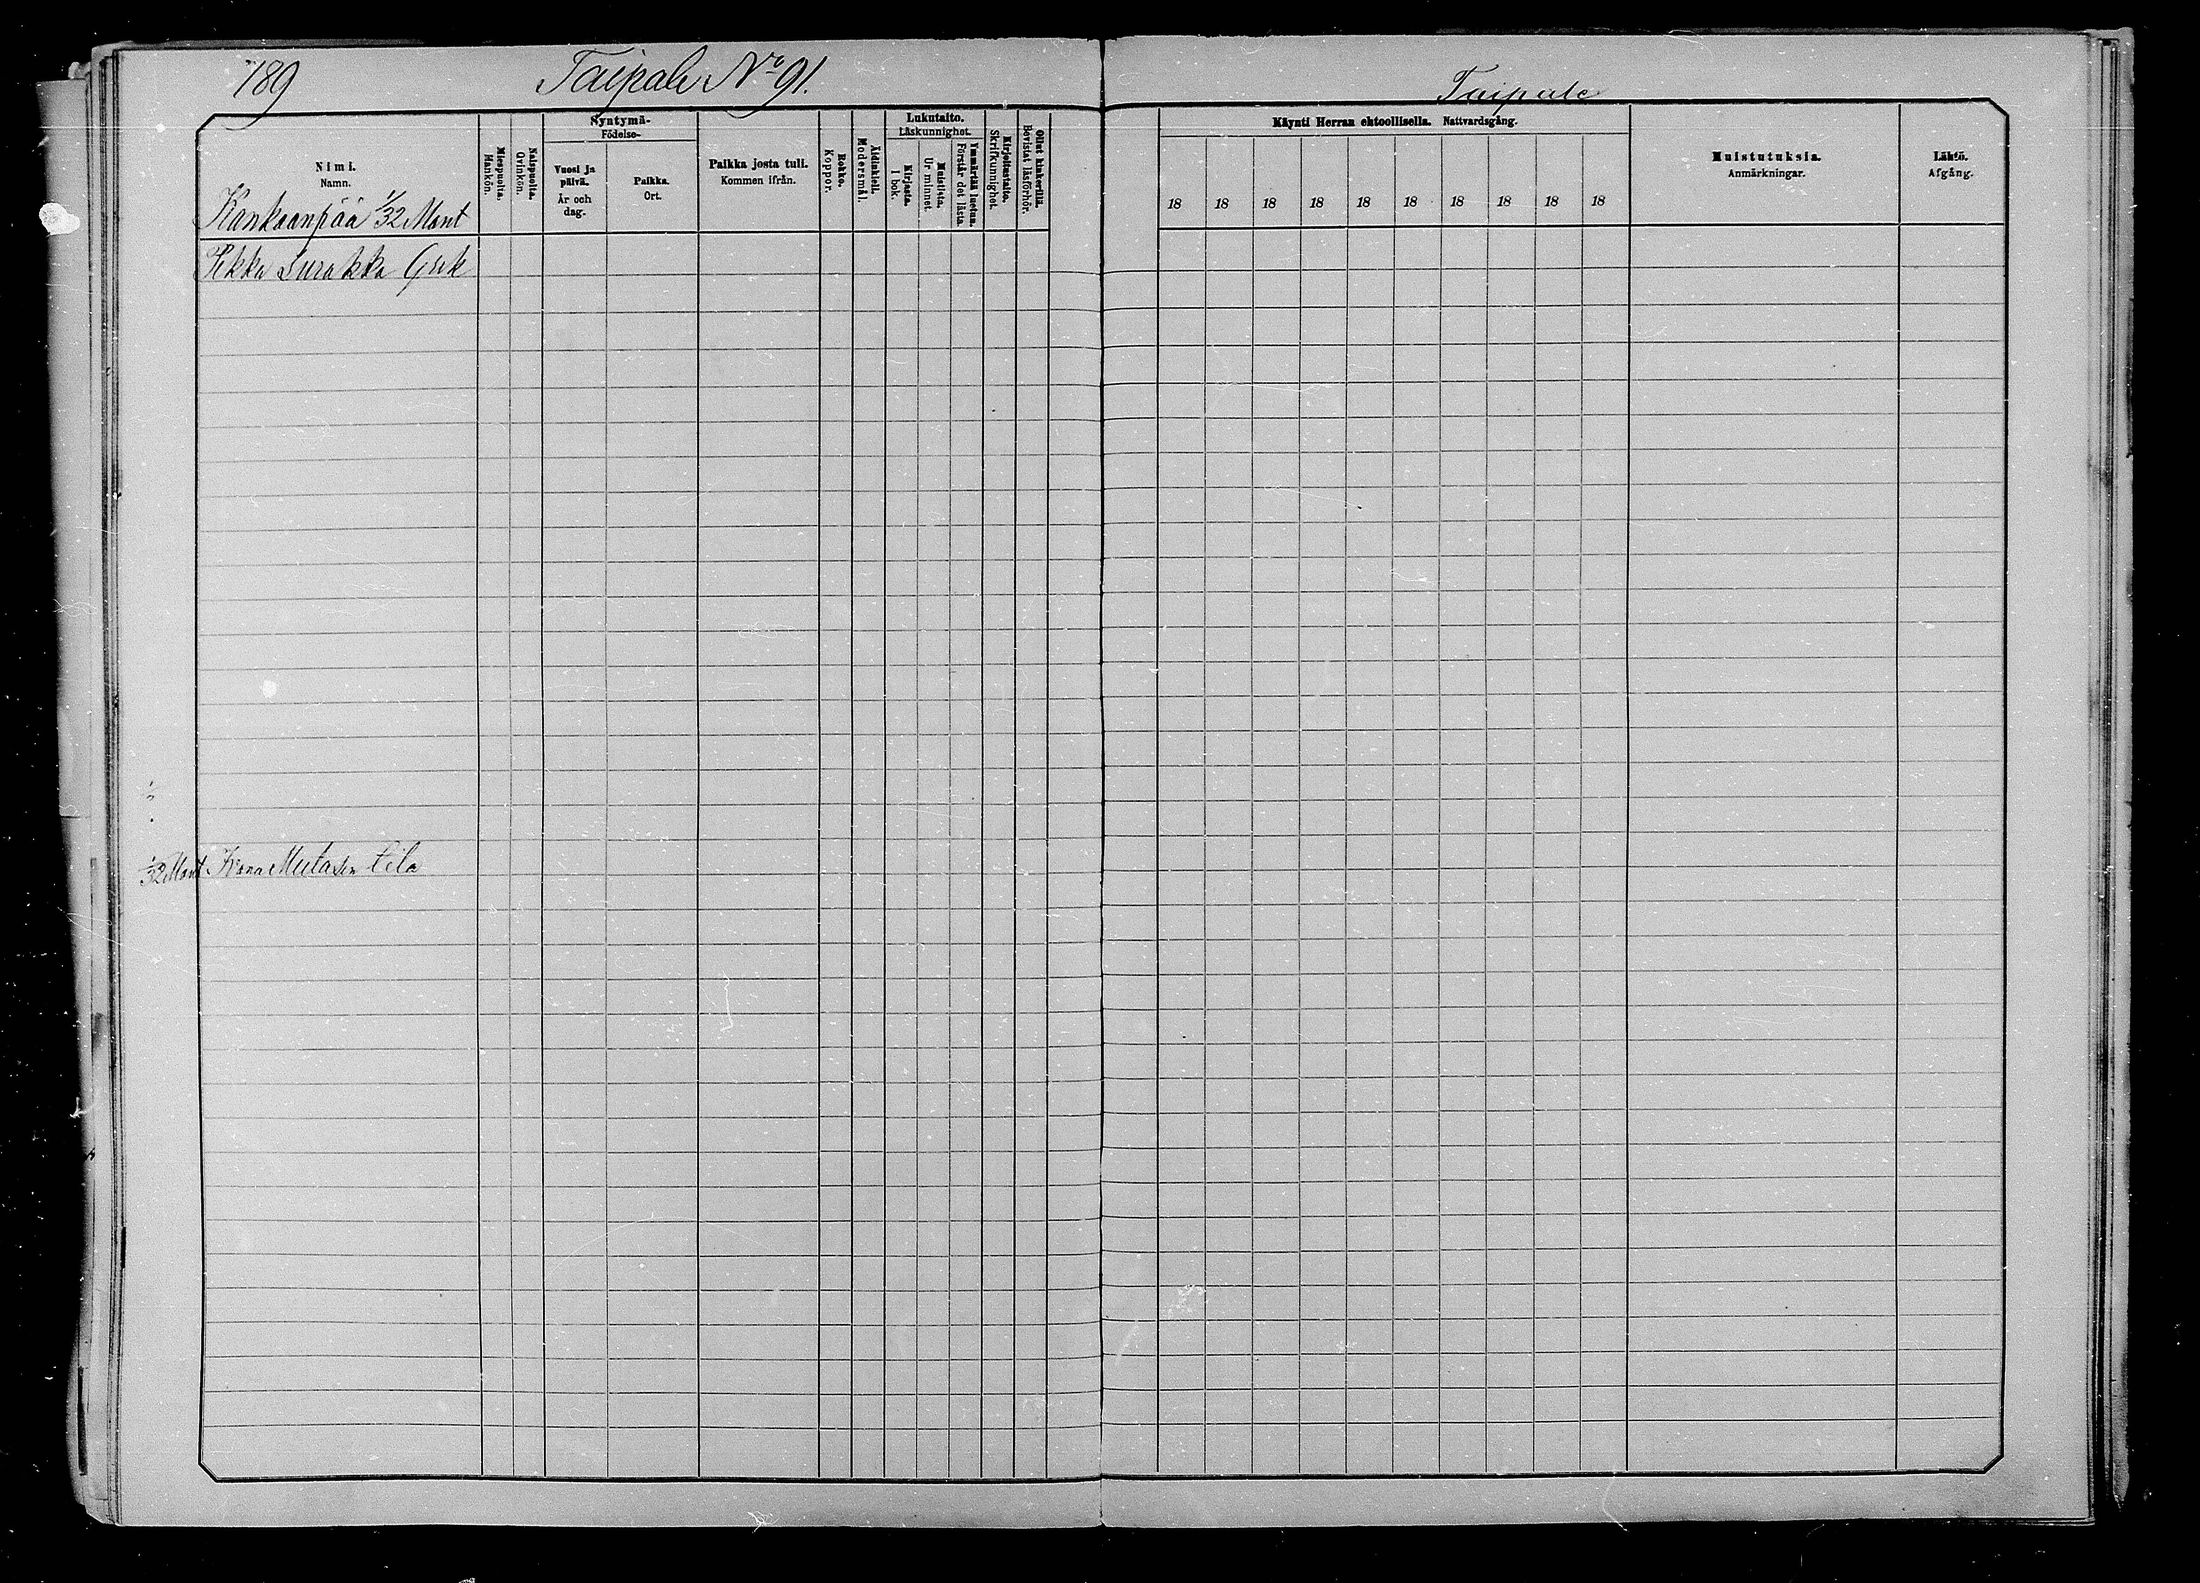 189
Taipale No 91.
Taipale
Nimi.
Namn.
Miespuolta.
Mankön.
Naispuolta.
Qvinkön.
Syntymä-
Födelse-
Vuosi ja
päivä.
År och
dag.
Paikka.
Ort.
Paikka josta tuli.
Kommen ifrån.
Rokko.
Koppor.
Äidinkieli.
Modersmål.
Lukutaito.
Läskunnighet.
Kirjasta.
I bok.
Muistista.
Ur minnet.
Ymmärtää luetun.
Förstår det lästa.
Kirjoitustaito.
Skrifkunnighet.
Ollut kinkerillä.
Bevistat läsförhör.
Käynti Herran ehtoollisella. Nattvardsgång.
18 18 18 18 18 18 18 18 18 18
Muistutuksia.
Anmärkningar.
Lähtö.
Afgång.
Kankaanpää 1/32 Mant
Pekka Surakka Grek
1/32 Mant tila